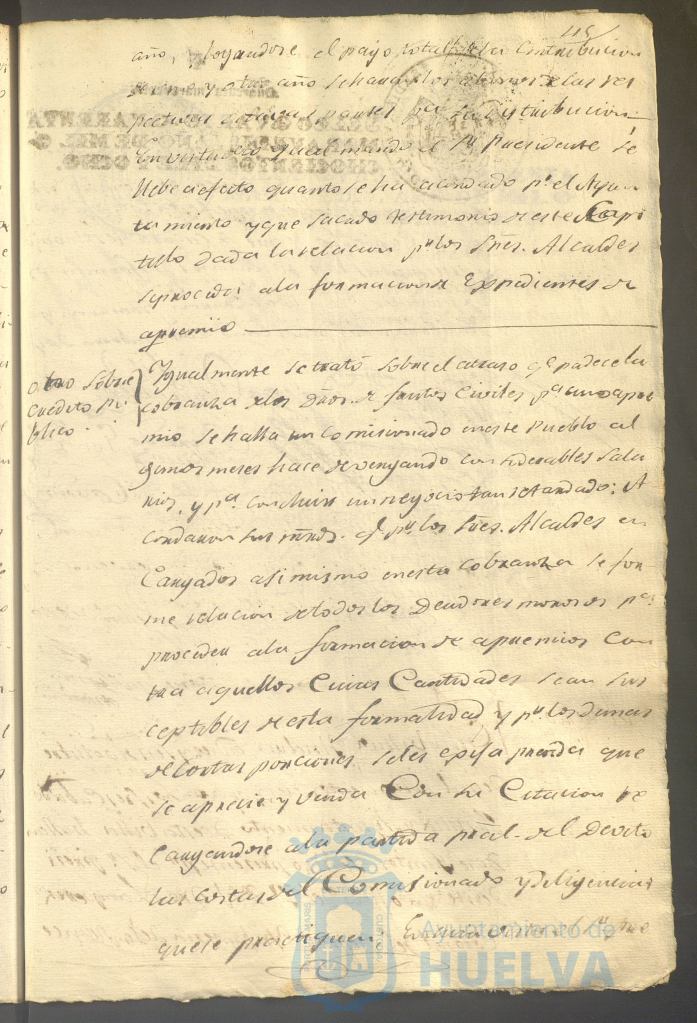 115
año, y logrados el pago total de la Contribucion
de uno y otro año se haran los abonos a las res
pectivas
En virtud de qual mando el Sr. Presidente se
llebe a efecto quanto se ha acordado pr. el Ayun
tamiento y que sacado testimonio de este Capi
tulo dada la relacion pr. los Sres. Alcaldes
se proceda a la formacion de Expedientes de
apremio
otro sobre
Credito Pu
blico.
Igualmente se trató sobre el atraso qe. padece la
cobranza de los Dros. de frutos Civiles pa. cuyo apre
mio se halla un Comisionado en este Pueblo al
gunos meses hace devengando considerables sala
rios, y pa. concluir un negocio tan retardado: A
cordaron sus mrds. qe. pr. los Sres. Alcaldes en
cargados asi mismo en esta cobranza se for
me relacion de todos los Deudores morosos pa.
proceder a la formacion de apremios Con
tra aquellos Cuias Cantidades sean sus
ceptibles de esta formalidad y pr. los demas
de cortas porciones se les exija prenda que
se aprecie y venda Con su Citacion re
cargandose a la partida pral. del Devito
las costas del Comisionado y diligencias
que se practiquen.
Ayuntamiento de
HUELVA